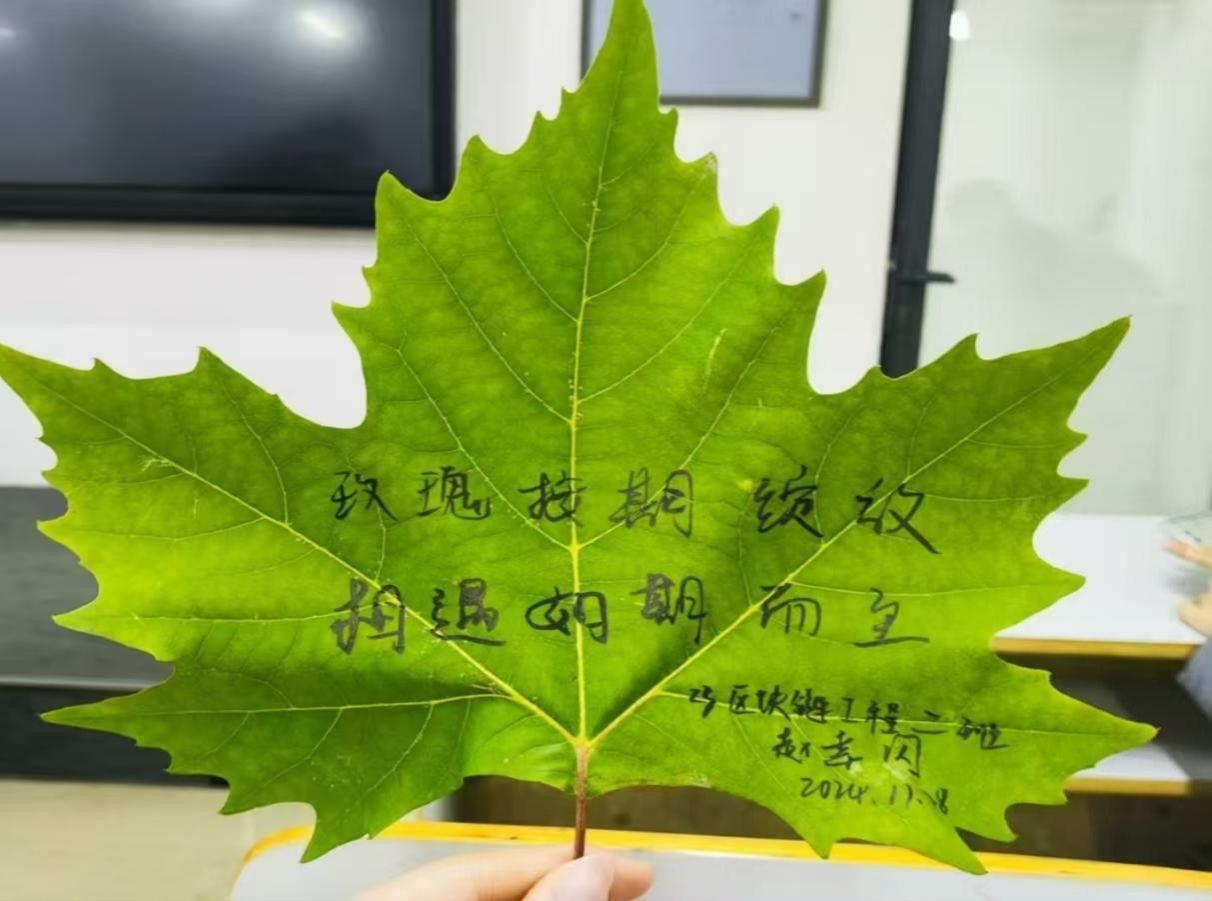 玫瑰按期绽放
相遇如期而至
23区块链工程二班
赵孝闪
2024.11.18